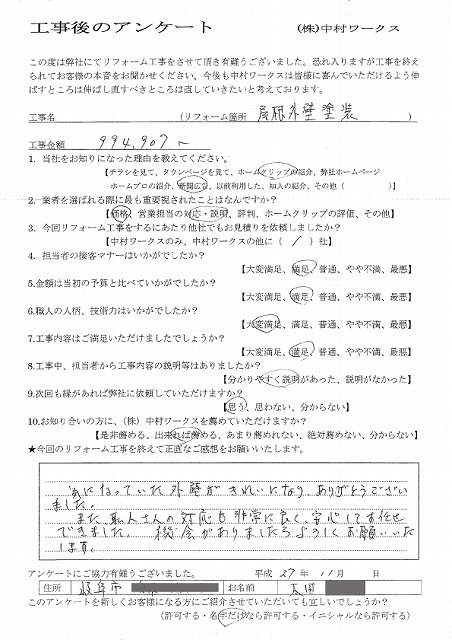 工事後のアンケート　(株)中村ワークス
この度は弊社にてリフォーム工事をさせて頂き有難うございました。恐れ入りますが工事を終え
られてお客様の本音をお聞かせください。今後も中村ワークスは皆様に喜んでいただけるよう伸
ばすところは伸ばし直すべきところは直していきたいと考えております。
工事名　(リフォーム箇所　屋根外壁塗装　)
工事金額　994,907~
1. 当社をお知りになった理由を教えてください。
【チラシを見て、タウンページを見て、ホームクリップの紹介、弊社ホームページ
ホームプロの紹介、新聞広告、以前利用した、知人の紹介、その他（　　）】
2. 業者を選ばれる際に最も重要視されたことはなんですか？
【価格、営業担当の対応・説明、評判、ホームクリップの評価、その他】
3. 今回リフォーム工事をするにあたり他社でもお見積りを依頼しましたか？
【中村ワークスのみ、中村ワークスの他に（ / ）社】
4. 担当者の接客マナーはいかがでしたか？
【大変満足、満足、普通、やや不満、最悪】
5.金額は当初の予算と比べていかがでしたか？
【大変満足、満足、普通、やや不満、最悪】
6.職人の人柄、技術力はいかがでしたか？
【大変満足、満足、普通、やや不満、最悪】
7.工事内容はご満足いただけましたでしょうか？
【大変満足、満足、普通、やや不満、最悪】
8.工事中、担当者から工事内容の説明等はありましたか？
【分かりやすく説明があった、説明がなかった】
9.次回も縁があれば弊社に依頼していただけますか？
【思う、思わない、分からない】
10.お知り合いの方に、(株) 中村ワークスを薦めていただけますか？
【是非薦める、出来れば薦める、あまり薦めれない、絶対薦めない、分からない】
★今回のリフォーム工事を終えて正直なご感想をお願いいたします。
気になっていた外壁がきれいになり、ありがとうござい
ました。
また、職人さんの対応も非常に良く、安心してお任せ
できました。 機会がありましたらよろしくお願いいた
します。
アンケートにご協力有難うございました。　平成 27 年 11 月　日
住所　岐阜市　お名前　太田
このアンケートを新しくお客様になる方にご紹介させていただいても宜しいでしょうか？
(許可する・名字だけなら許可する・イニシャルなら許可する)